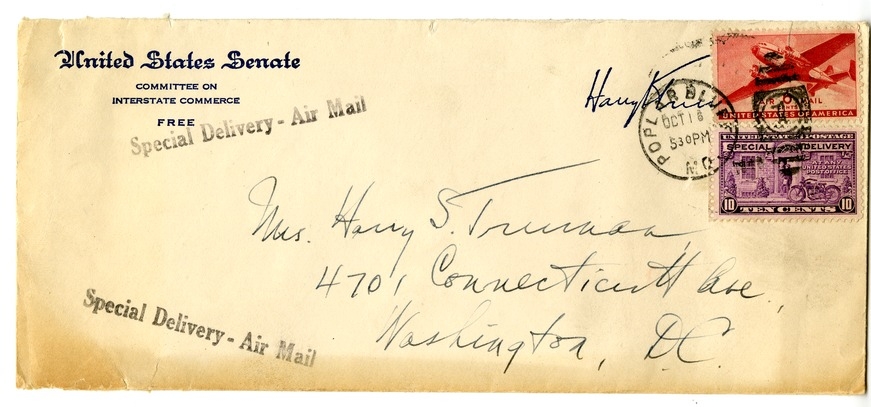 United States Senate
COMMITTEE ON
INTERSTATE COMMERCE
FREE
Special Delivery - Air Mail
Harry
POPLAR BLUFF
OCT 18
530PM
MO
AIR MAIL
UNITED STATES OF AMERICA
UNITED STATES POSTAGE
SPECIAL DELIVERY
AT ANY
UNITED STATES
POST OFFICE
10 TEN CENTS 10
Mrs. Harry S. Truman,
4701 Connecticutt Ave.,
Washington, D.C.
Special Delivery - Air Mail